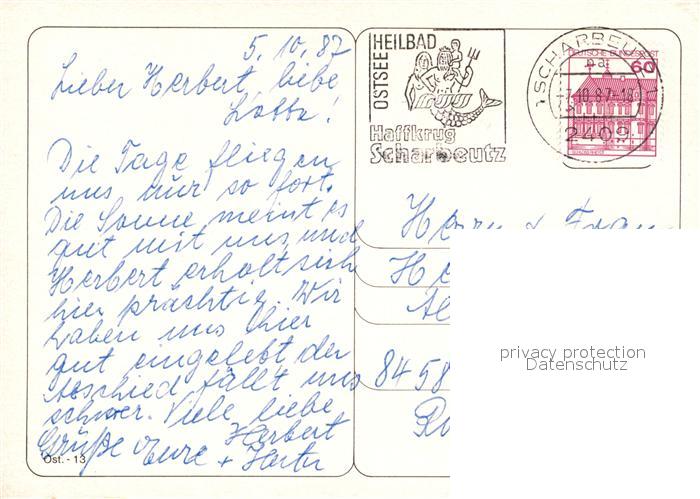 5.10.87
Lieber Herbert, liebe
Lotte!
Die Tage fliegen
uns nur so fort.
Die Sonne meint es
gut mit uns und
Herbert erholt sich
hier prächtig. Wir
haben uns hier
gut eingelebt der
Abschied fällt uns
schwer. Viele liebe
Grüße Eure Herbert
+
Öst. - 13
OSTSEE HEILBAD
Haffkrug
Scharbeutz
SCHARBEUTZ
2409
DEUTSCHE BUNDESPOST
60
Herrn & Frau
8458
privacy protection
Datenschutz